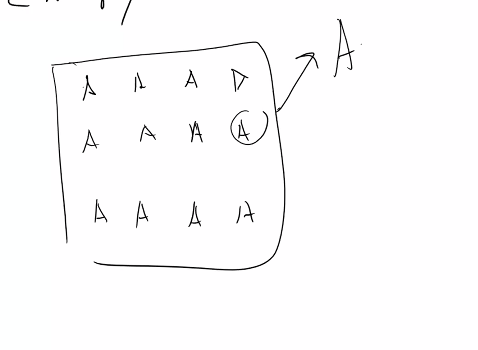 A A A D
A A A A
A A A A
A